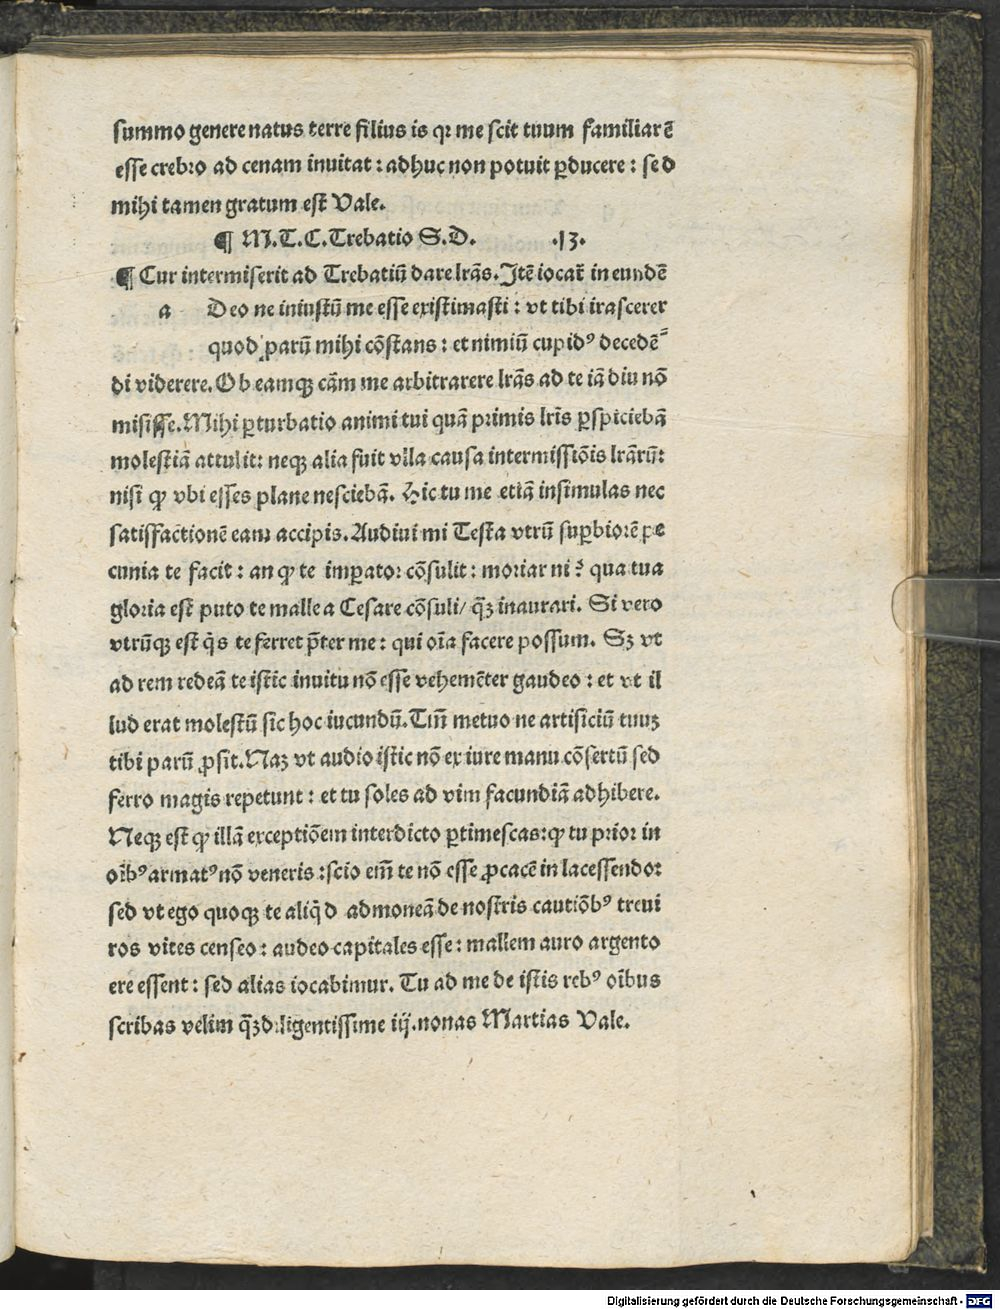 summo genere natus terre filius is qꝛ me scit tuum familiarē
esse crebro ad cenam inuitat : adhuc non potuit ꝑducere : sed
mihi tamen gratum est Vale.
¶ M.T.C. Trebatio S.D. .13.
¶ Cur intermiserit ad Trebatiū dare lrās. Jtē iocat̄ in eundē
a Deo ne iniustū me esse existimasti : vt tibi irascerer
quod parū mihi cōstans : et nimiū cupidꝰ decedē⸗
di viderere. Ob eamqꝫ cām me arbitrarere lrās ad te iā diu nō
misisse. Mihi ꝑturbatio animi tui quā primis lrīs ꝑspiciebā
molestiā attulit : neqꝫ alia fuit vlla causa intermissiōis lrārū :
nisi ꝙ vbi esses plane nesciebā. Hic tu me etiā insimulas nec
satisfactionē eam accipis. Audiui mi Testa vtrū suꝑbiorē pe
cunia te facit : an ꝙ te imꝑator cōsulit : moriar ni ? qua tua
gloria est puto te malle a Cesare cōsuli/ q̄ꝫ inaurari. Si vero
vtrūqꝫ est q̄s te ferret p̄ter me : qui oīa facere possum. Sꝫ vt
ad rem redeā te istic inuitu nō esse vehemēter gaudeo : et vt il
lud erat molestū sic hoc iucundū. Tm̄ metuo ne artificiū tuuꝫ
tibi parū ꝓsit. Naꝫ vt audio istic nō ex iure manu cōsertū sed
ferro magis repetunt : et tu soles ad vim facundiā adhibere.
Neqꝫ est ꝙ illā exceptiōem interdicto ꝑtimescas : ꝙ tu prior in
oībꝰ armatꝰ nō veneris : scio em̄ te nō esse ꝓcacē in lacessendo :
sed vt ego quoqꝫ te aliq̄d admoneā de nostris cautiōbꝰ treui
ros vites censeo : audeo capitales esse : mallem auro argento
ere essent : sed alias iocabimur. Tu ad me de istis rebꝰ oībus
scribas velim q̄ꝫ diligentissime iij. nonas Martias Vale.
Digitalisierung gefördert durch die Deutsche Forschungsgemeinschaft - DFG